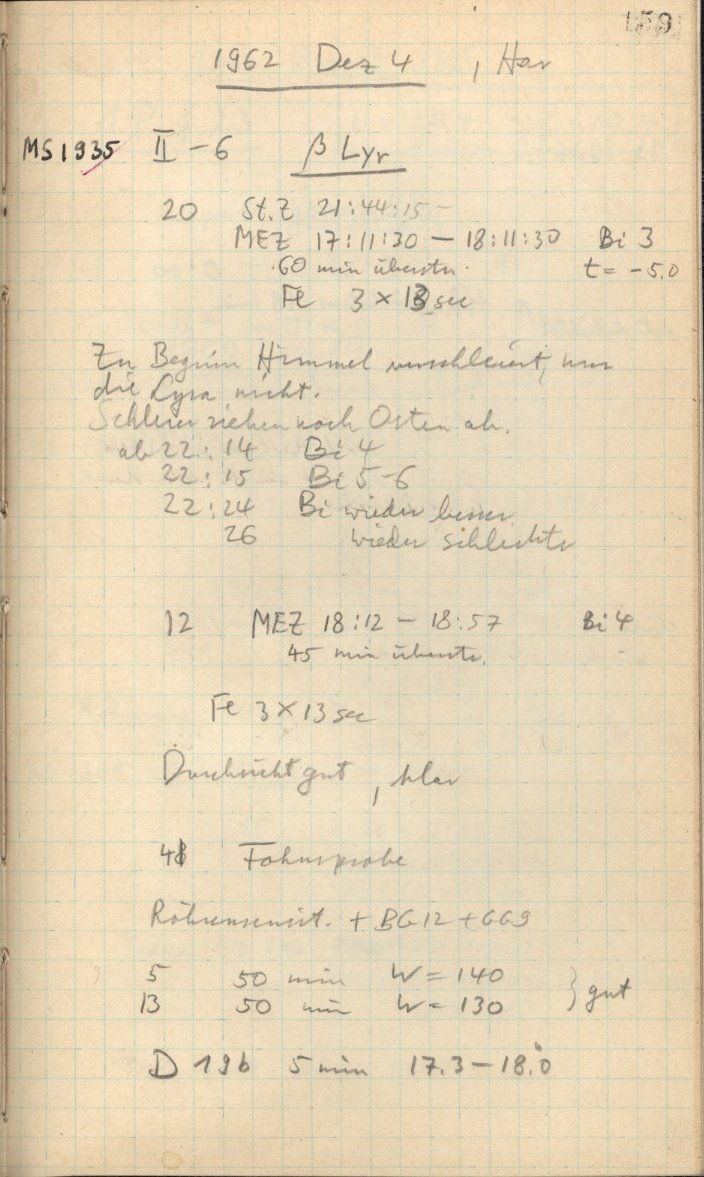 159
1962 Dez 4 , Har
MS1935 II-6 β Lyr
20 St.Z 21:44:15 -
MEZ 17:11:30 - 18:11:30 Bi 3
60 min überstr. t = -5.0
Fe 3 x 13 sec
Zu Beginn Himmel verschleiert, nur
die Lyra nicht.
Schleier ziehen nach Osten ab.
ab 22:14 Bi 4
22:15 Bi 5-6
22:24 Bi wieder besser
26 wieder schlechter
12 MEZ 18:12 - 18:57 Bi 4
45 min überstr.
Fe 3 x 13 sec
Durchsicht gut , klar
48
Röhrensensit. + BG12 + GG9
5 50 min W = 140
13 50 min W = 130 } gut
D 19b 5 min 17.3 - 18.0